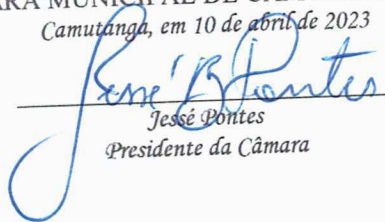 MUNICIPAL DE
Camutanga, em 10 de abril de 2023
Jessé B Pontes
Jessé Pontes
Presidente da Câmara